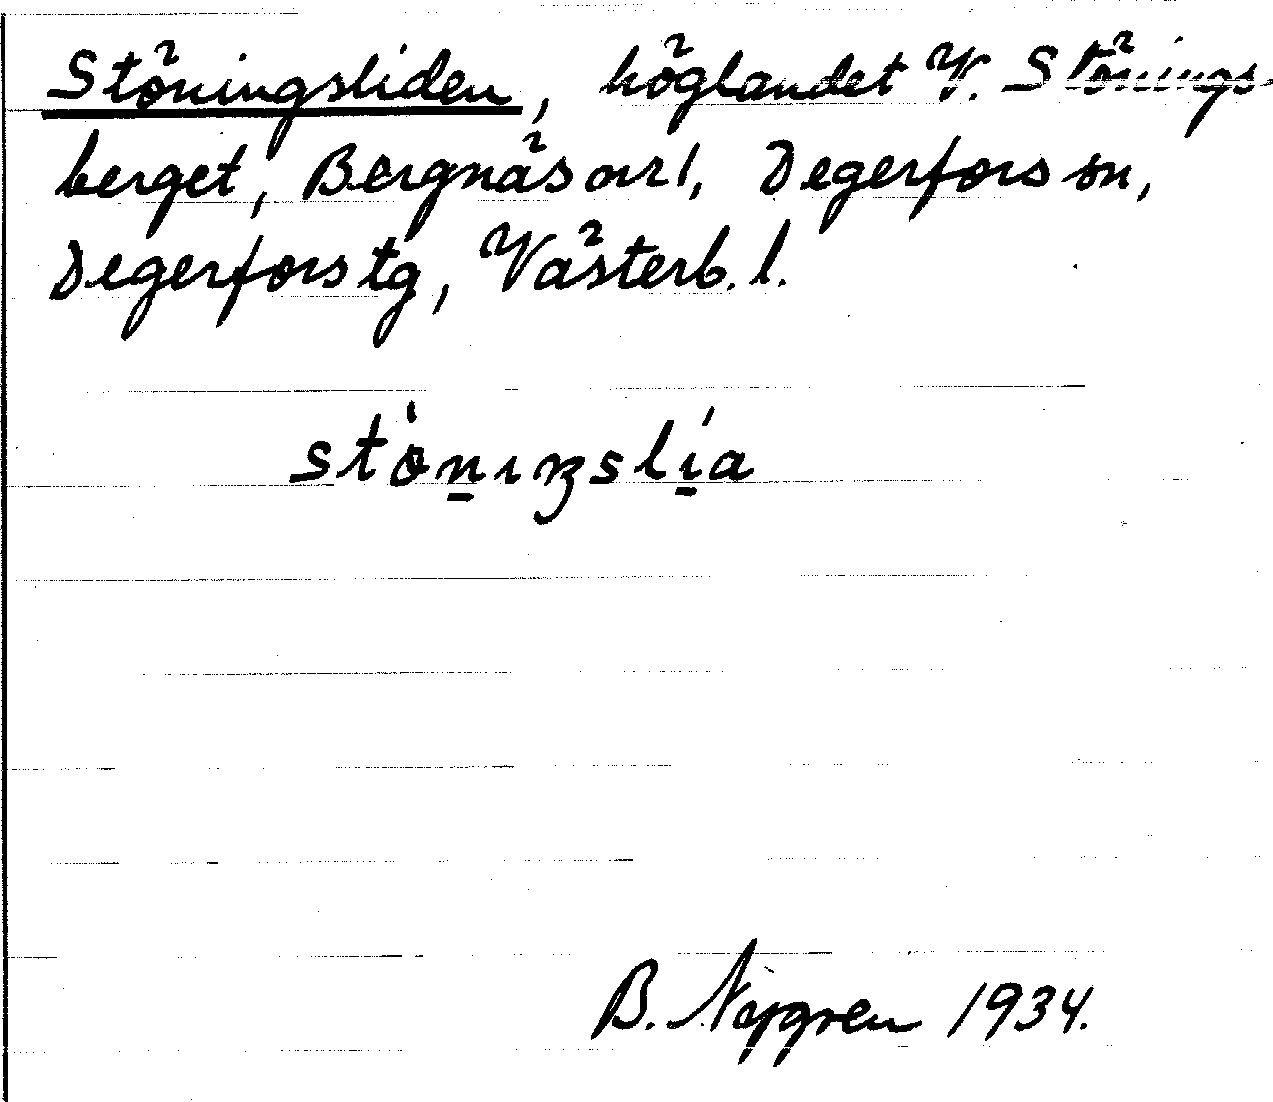 Stöningsliden, höglandet V. Stönings-
berget, Bergnäs
Degerfors sn,
Degerfors tg, Västerb. l.
B. Nygren 1934.